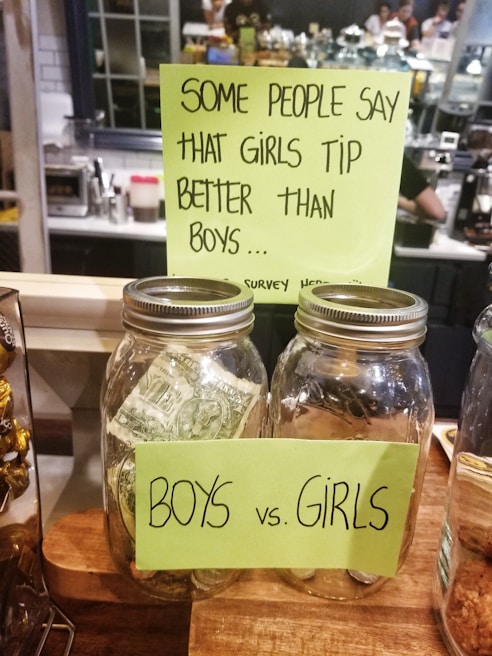 SOME PEOPLE SAY
THAT GiRLS TiP
BETTER THAN
BOYS...
SURVEY HERE
BOYS vs. GiRLS